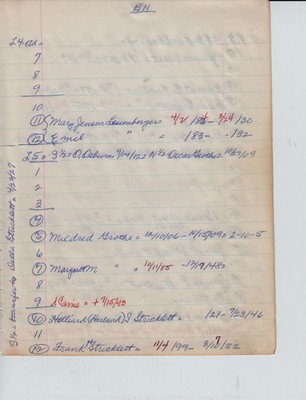 B11
L4 ctd =
7
8
9
10
11 Mary Jensen Losenberger = 4/2/ - 7/24/30
12 Emil " = /83 - /32
L5 = S 1/2 = O. Osburn 9/14/22 N 1/2 Oscar Grothe = 10/29/09
1
2
3
4
5 Mildred Grothe = 12/10/06 - 10/15/09 = 2-10-5
6
7 Margaret M " = 10/11/85 - 12/19/43
8
9 S Same = + 7/15/43
10 Holliard (Harland) J Stricklett = /21 - 7/23/46
11
12 Frank M Stricklett = 11/4/99 - 3/17/52
S 1/2 = transfer to Della Stricklett = 4/23/27